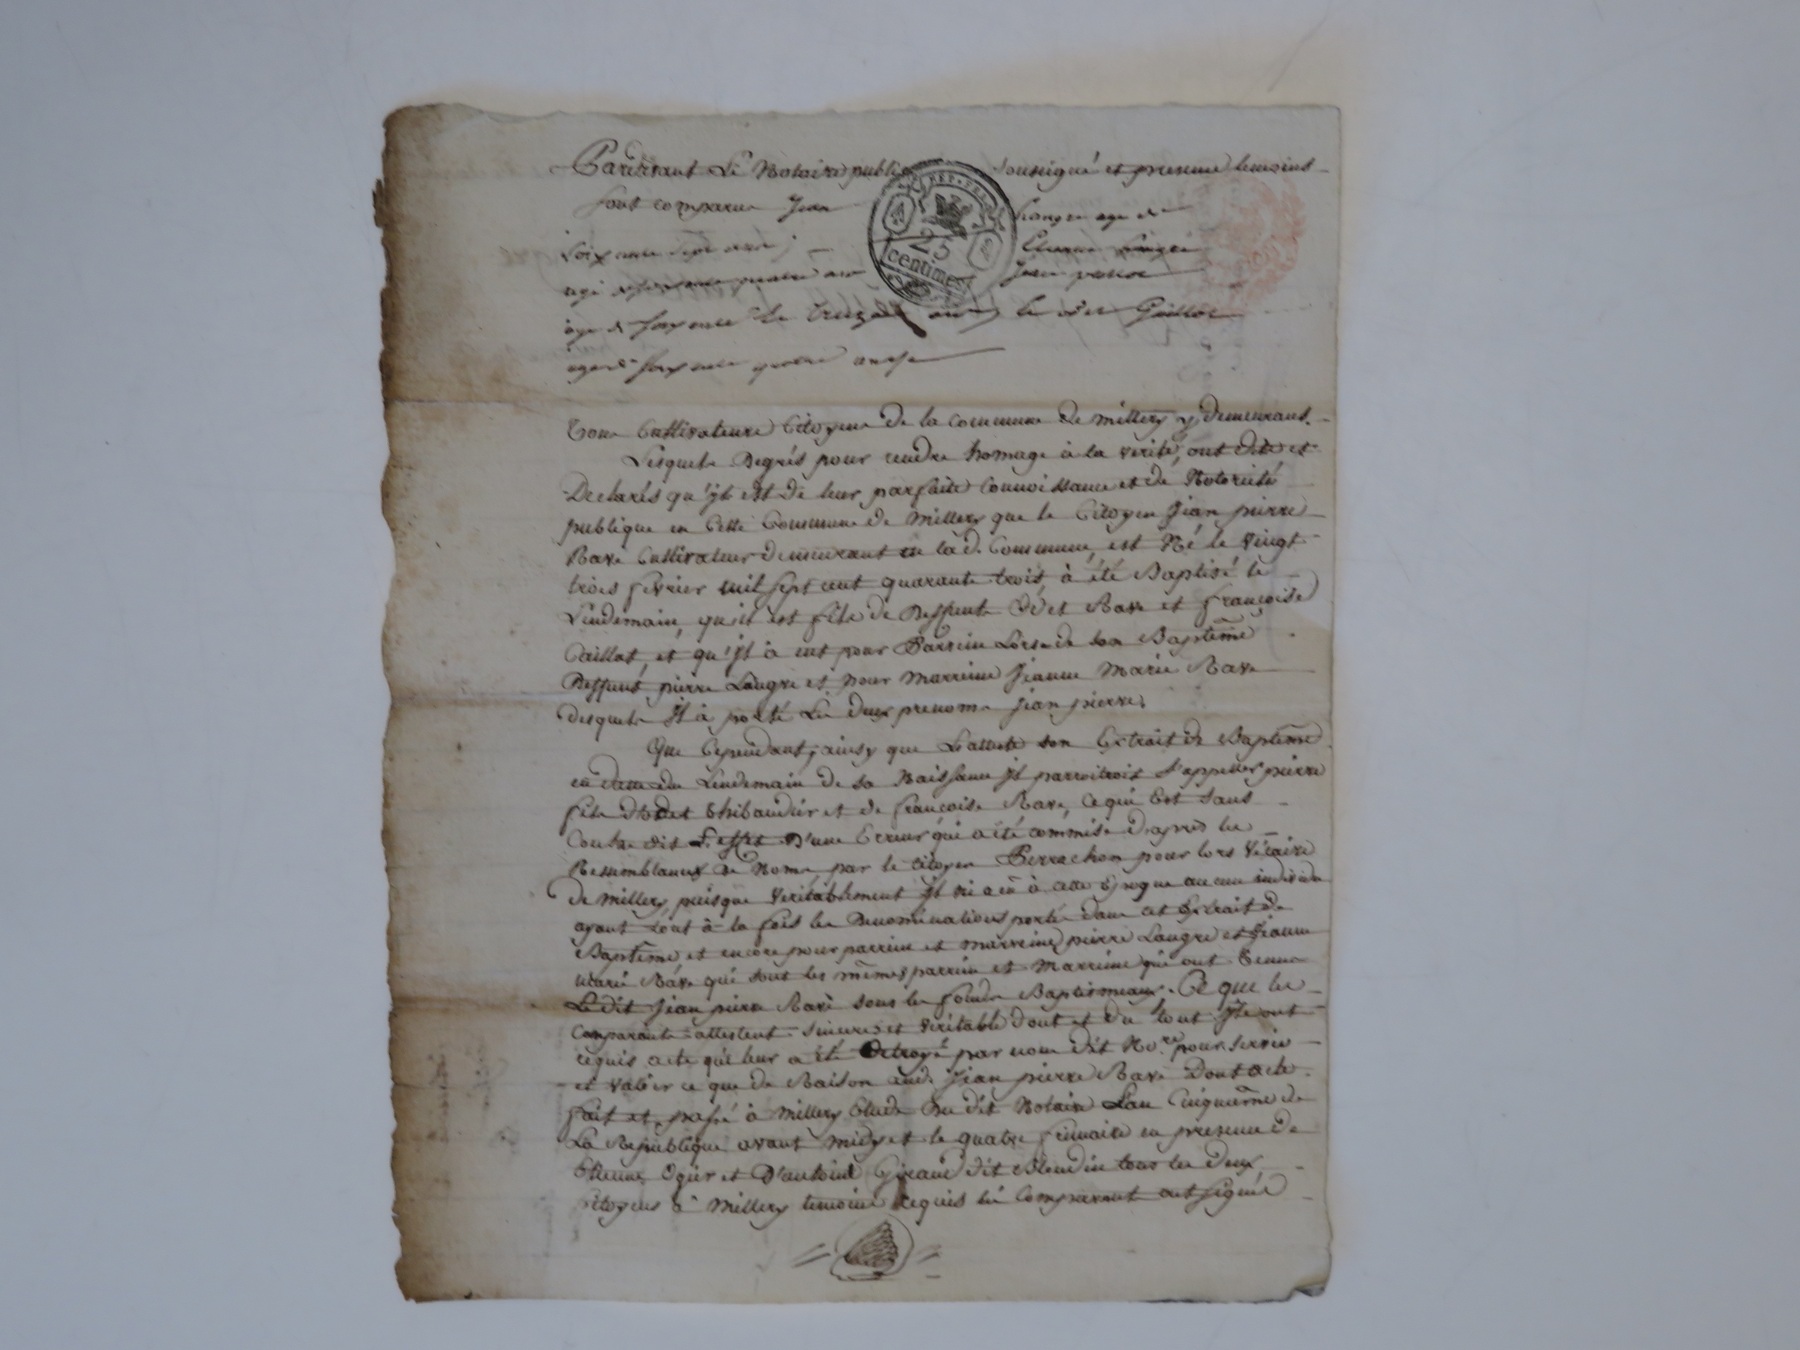 Pardevant Le Notaire public soussigné et presence temoins
sont comparus Jean Langre age de
soixante sept ans, Etienne
agé de soixante quatre ans Jean
age de soixante et treize ans et Guillot
age de soixante quatre ans
REP. FRA.
25
centimes
Tous Cultivateurs Citoyens de la commune de millery y demeurans.
Lesquels Degrés pour rendre homage à la verité, ont dit et
Declarés qu'jls est de leur parfaite Connoissance et de Notorieté
publique en Cette Commune de millery que le Citoyen Jean pierre
Rave Cultivateur demeurant en lad. Commune, est Né le vingt
trois fevrier mil sept cent quarante trois, à été Baptisé le
Lendemain, qu'il est fils de Deffunts Odet Rave et françoise
Caillot, et qu'Jl à eut pour Parrein Lors de son Baptême
Deffunt pierre Langre et pour marreine Jeanne Marie Rave
desquels Jl à porté Les deux prenoms Jean pierre.
Que Cependant, ainsy que L'atteste son Extrait de Baptême
en datte du Lendemain de sa Naissance Jl parroitroit s'appeller pierre
fils d'Odet thibaudier et de françoise Rave, Ce qui Est sans
Contre dit L'effet D'une Erreur qui a été commise d'après les
Ressemblances de Noms par le citoyen Perrachon pour lors Vicaire
de millery, puisque Veritablement Jl ni a eû à cette Epoque aucun individu
ayant tout à la fois les Denominations portés dans cet Extrait de
Baptême et encore pour parrein et marreine, pierre Langre et Jeanne
marie Rave qui sont les mêmes parrein et Marreine qui ont Tenus
Le dit Jean pierre Rave sous les fonds Baptismeaux. Ce que les
Comparants attestent sincere et veritable dont et du tout Jls ont
requis acte qui leur a été octroyé par nous dit No.re pour servir
et valoir ce que de Raison aud. Jean pierre Rave Dont acte.
fait et passé à millery Etude du dit Notaire L'an Cinquième de
La Republique avant midy et le quatre frimaire en presence de
Etienne Ogier et D'antoine Giraud dit Blondin tous les deux
citoyens à Millery temoins requis les Comparants ont signé